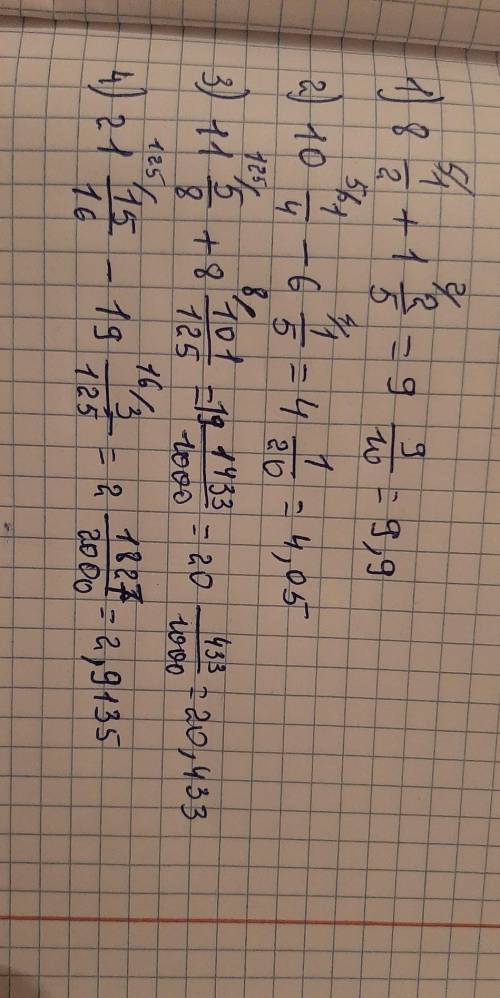 1) 8 5/1/2 + 1 2/2/5 = 9 9/10 = 9,9
2) 10 5/1/4 - 6 4/1/5 = 4 1/20 = 4,05
3) 11 125/5/8 + 8 8/101/125 = 19 1433/1000 = 20 433/1000 = 20,433
4) 21 125/15/16 - 19 16/3/125 = 2 1827/2000 = 2,9135